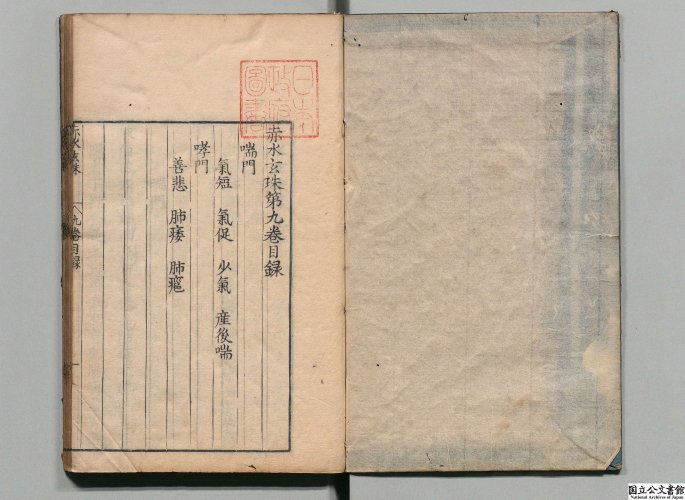 赤水玄珠第九卷目録
喘門
氣短 氣促 少氣 産後喘
哮門
善悲 肺痿 肺癰
赤水玄珠
九卷目録
日本
政府
圖書
国立公文書館
National Archives of Japan